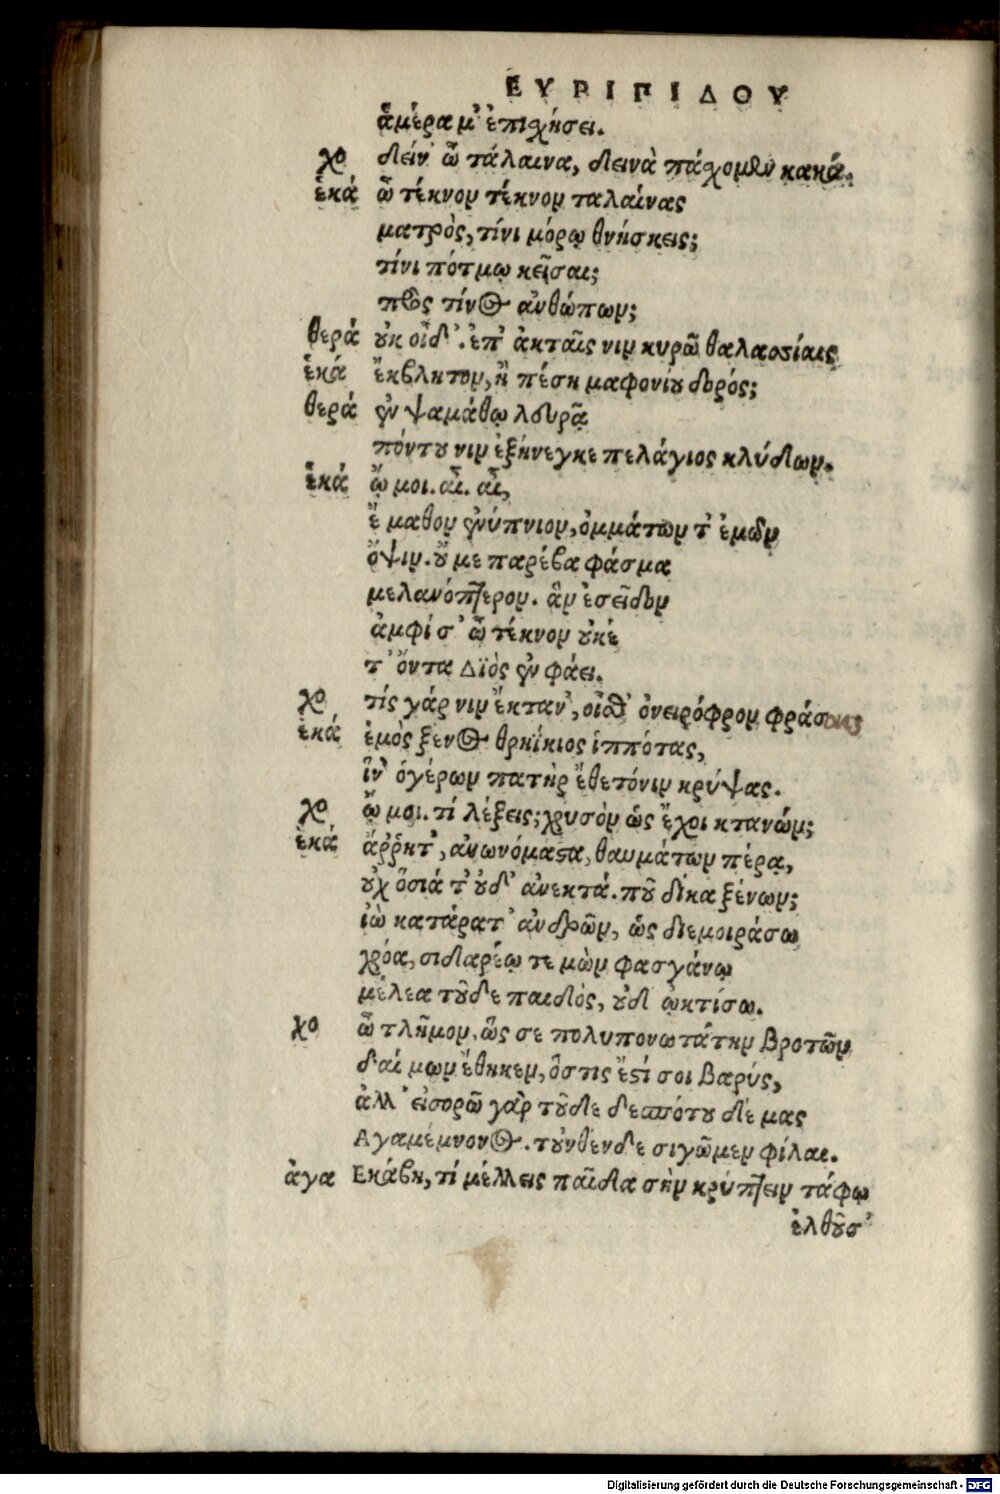 ΕΥΡΙΠΙΔΟΥ
ἁμέρα μ' ἐπισχήσει.
χο δείν' ὦ τάλαινα, δεινὰ πάσχομεν κακά.
ἑκά ὦ τέκνον τέκνον ταλαίνας
ματρὸς, τίνι μόρῳ θνήσκεις;
τίνι πότμῳ κεῖσαι;
πρὸς τίνος ἀνθώπων;
θερά οὐκ οἶδ'. ἐπ' ἀκταῖς νιν κυρῶ θαλασσίαις
ἑκά ἔκβλητον, ἢ πέσημα φονίου δορός;
θερά ἐν ψαμάθῳ λευρᾷ
πόντου νιν ἐξήνεγκε πελάγιος κλύδων.
ἑκά ὤ μοι. αἶ. αἶ,
ἔμαθον ἐνύπνιον, ὀμμάτων τ' ἐμῶν
ὄψιν. οὔ με παρέβα φάσμα
μελανόπτερον. ἃν ἐσεῖδον
ἀμφί σ' ὦ τέκνον οὐκέ
τ' ὄντα Διὸς ἐν φάει.
χο τίς γάρ νιν ἔκταν', οἶσθ' ὀνειρόφρον φράσαι
ἑκά ἐμὸς ξενος θρηΐκιος ἱππότας,
ἵν' ὁγέρων πατὴρ ἔθετόνιν κρύψας.
χο ὤ μοι. τί λέξεις; χρυσὸν ὡς ἔχοι κτανών;
ἑκά ἄῤῥητ', ἀνωνόμαστα, θαυμάτων πέρα,
οὐχ ὅσιά τ' οὐδ' ἀνεκτά. ποῦ δίκα ξένων;
ἰὼ κατάρατ' ἀνδρῶν, ὡς διεμοιράσω
χρόα, σιδαρέῳ τεμὼν φασγάνῳ
μέλεα τοῦδε παιδὸς, οὐδ' ᾠκτίσω.
χο ὦ τλῆμον, ὥς σε πολυπονωτάτην βροτῶν
δαίμων ἔθηκεν, ὅστις ἐστί σοι βαρύς,
ἀλλ' εἰσορῶ γὰρ τοῦδε δεσπότου δέμας
Αγαμέμνονος. τοὐνθένδε σιγῶμεν φίλαι.
ἀγα Εκάβη, τί μέλλεις παῖδα σὴν κρύπτειν τάφῳ
ἐλθοῦσ'
Digitalisierung gefördert durch die Deutsche Forschungsgemeinschaft - DFG